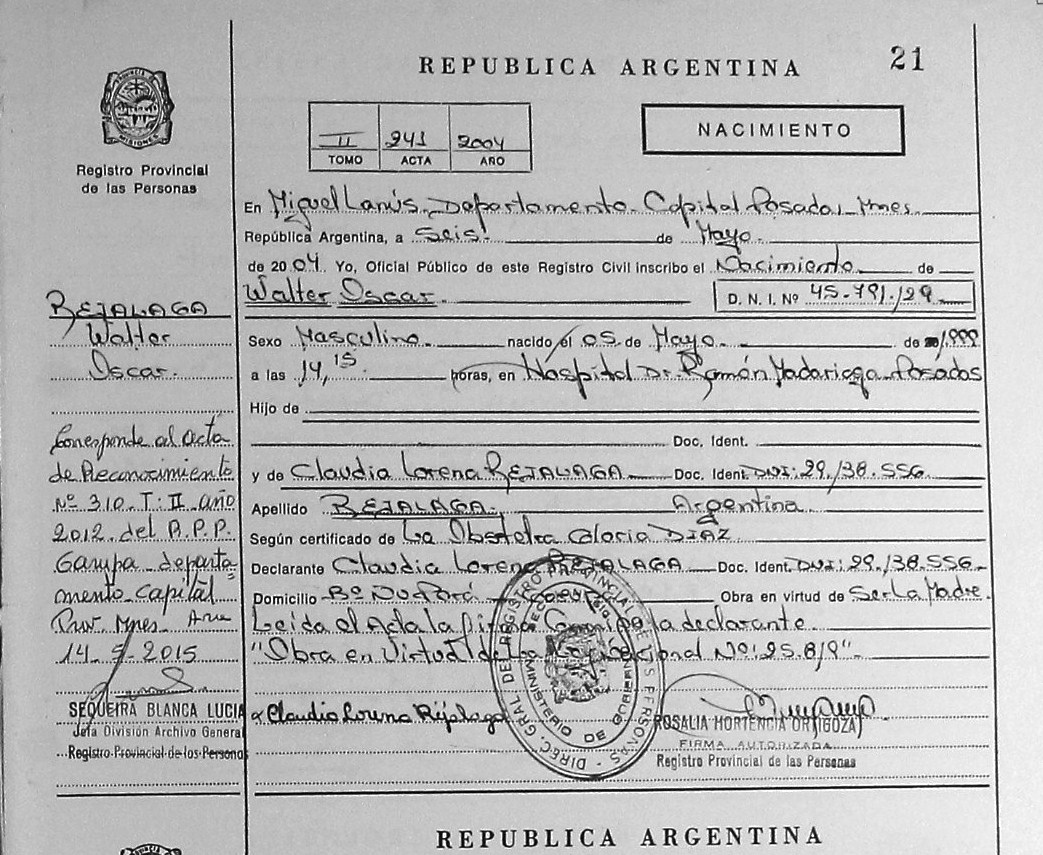 21
REPUBLICA ARGENTINA
PROVINCIA DE MISIONES
Registro Provincial
de las Personas
II 241 2004
TOMO ACTA AÑO
NACIMIENTO
En Miguel Lanús, Departamento Capital Posadas Mnes.
República Argentina, a Seis de Mayo
de 2004 Yo, Oficial Público de este Registro Civil inscribo el Nacimiento de
Walter Oscar D. N. I. Nº 45.791.129
Sexo Masculino nacido el 05 de Mayo de
a las 14,15 horas, en Hospital Dr. Ramón Madariaga Posadas
Hijo de
Doc. Ident.
y de Claudia Lorena REJALAGA Doc. Ident. DNI: 29.138.556
Apellido REJALAGA Argentina
Según certificado de La Obstetra Gloria DIAZ
Declarante Claudia Lorena REJALAGA Doc. Ident. DNI: 29.138.556
Domicilio Bº Obra en virtud de Ser La Madre.
Leída el Acta la firma la declarante
"Obra en Virtud de Ley Nº: 25.819"
Claudia Lorena Rejalaga
ROSALIA HORTENCIA ORTIGOZA
FIRMA AUTORIZADA
Registro Provincial de las Personas
DIREC. GRAL DEL REGISTRO PROVINCIAL DE LAS PERSONAS
MINISTERIO DE GOBIERNO
REJALAGA
Walter
Oscar.
Corresponde al acta
de Reconocimiento
Nº 310 T: II año
2012 del R.P.P.
Garupa departa
mento Capital
Prov. Mnes. Arg
14-5-2015
SEQUEIRA BLANCA LUCIA
Jefa División Archivo General
Registro Provincial de las Personas
REPUBLICA ARGENTINA